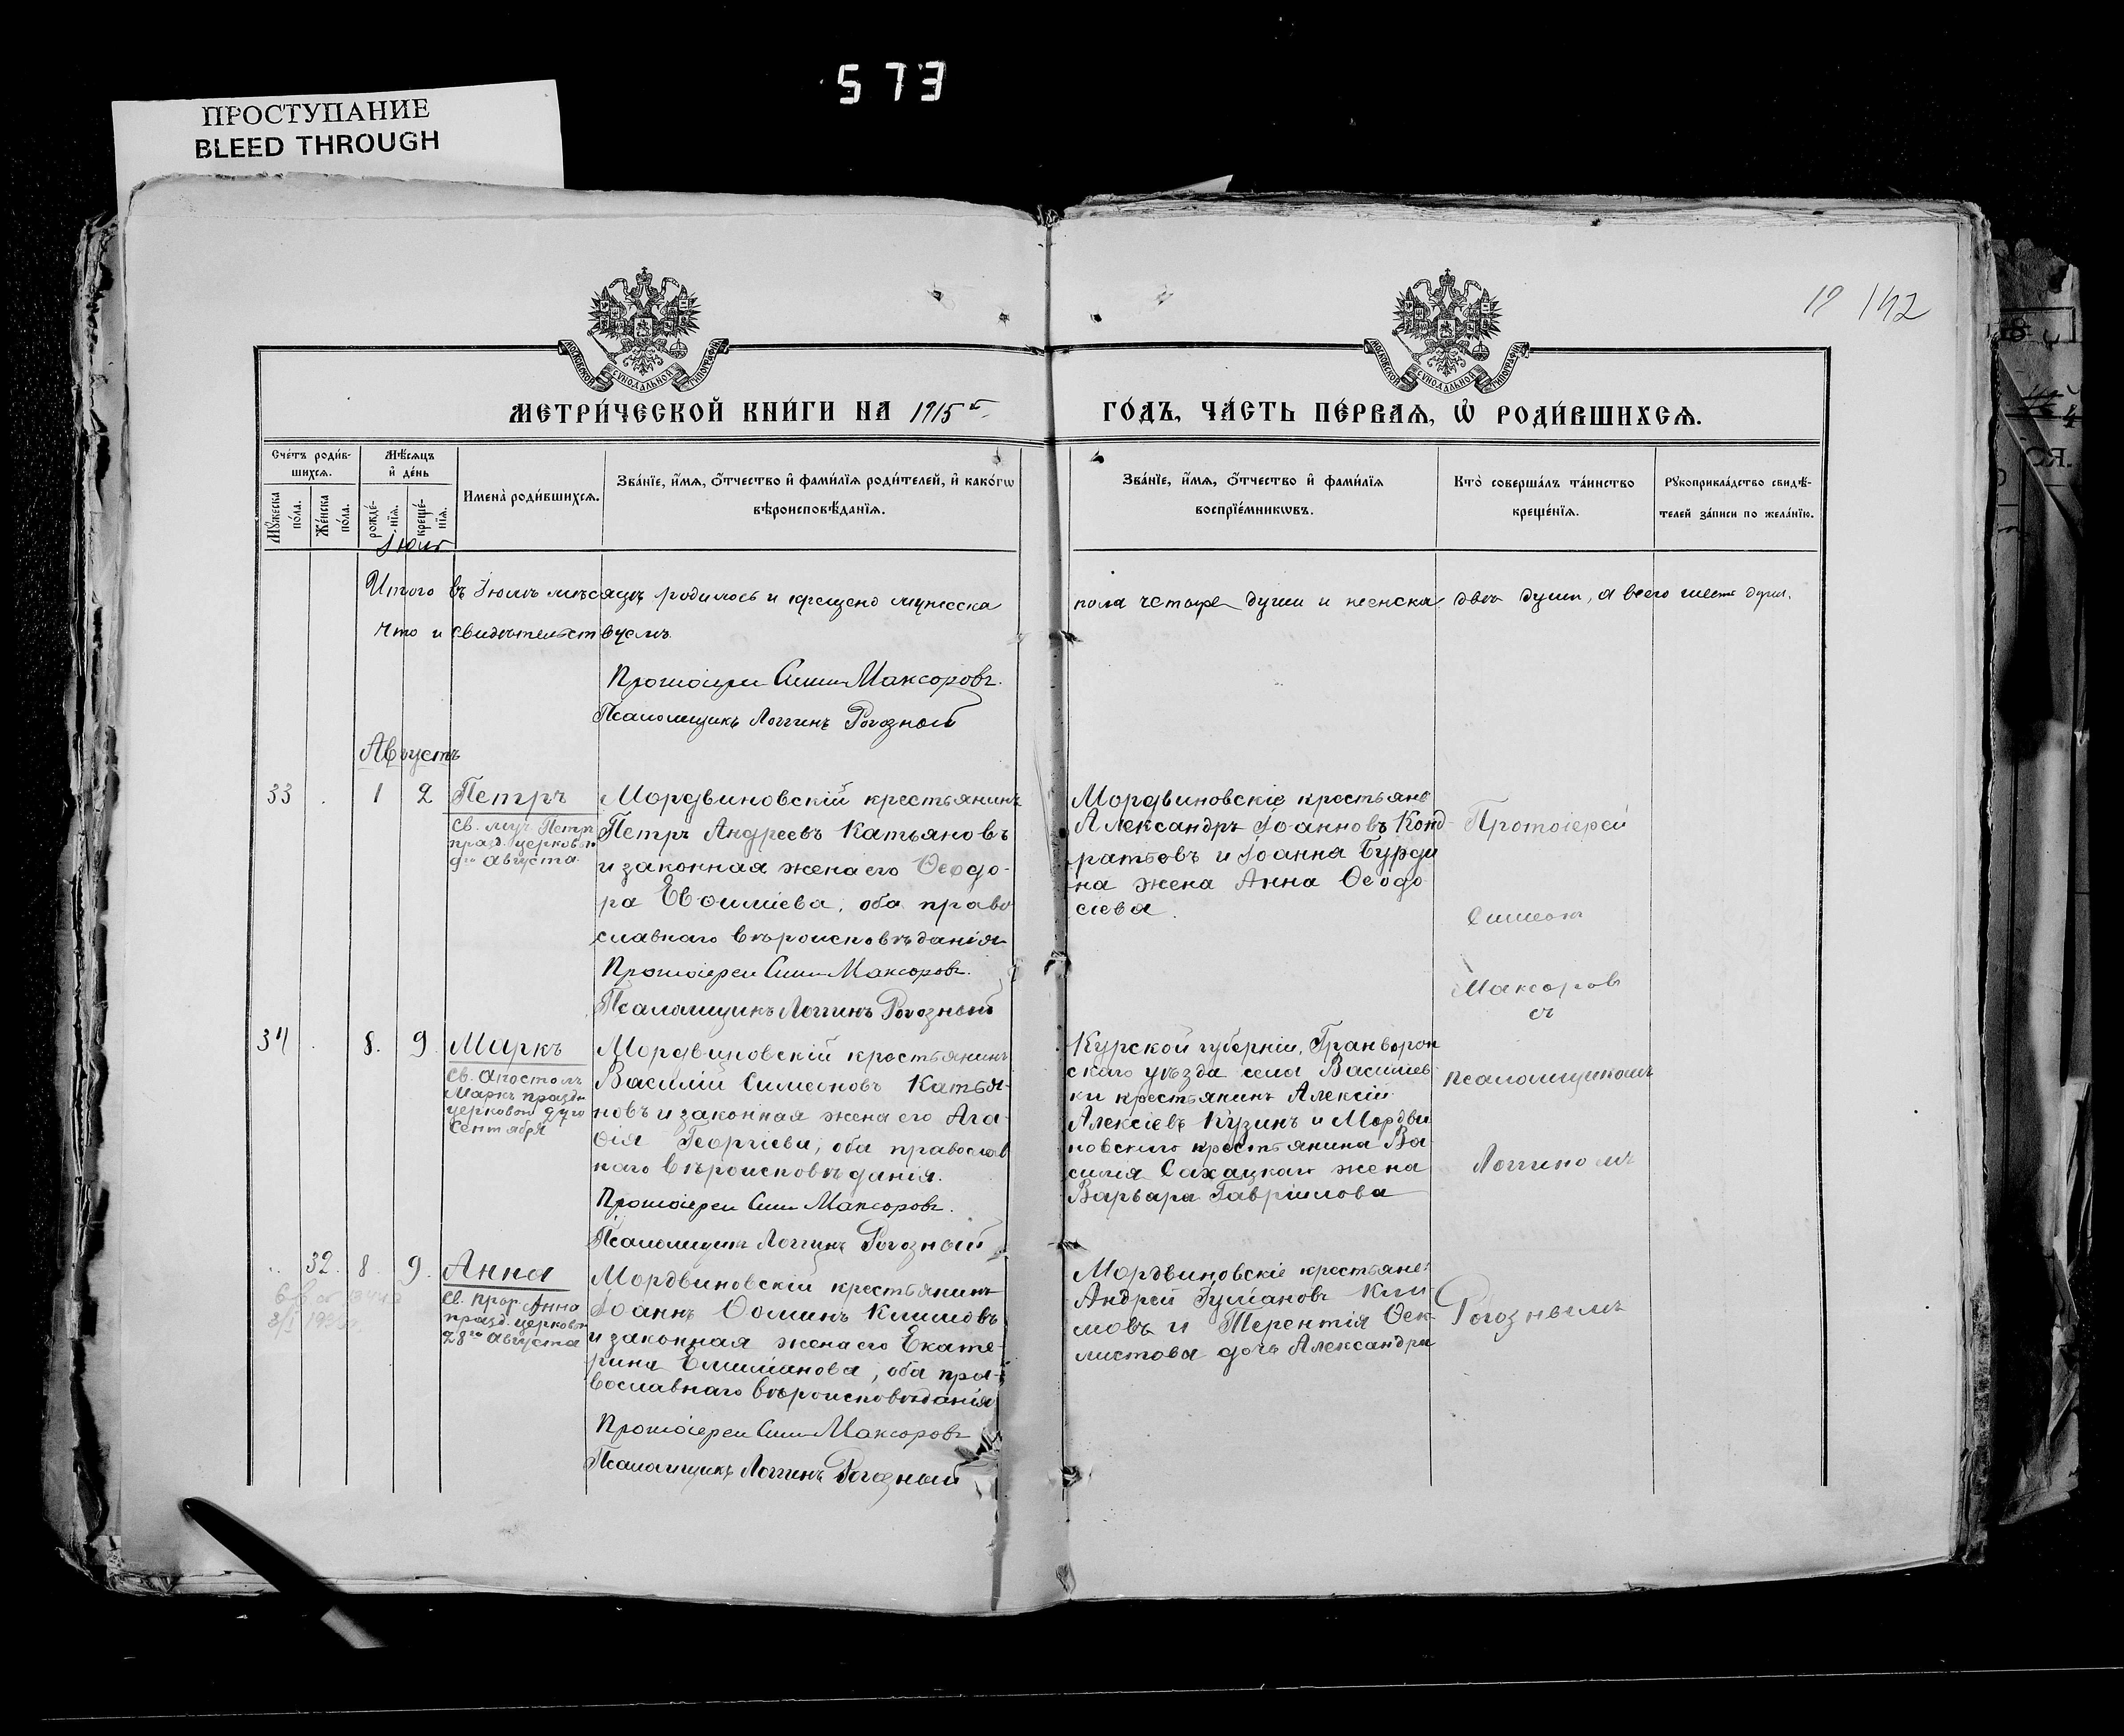 573
ПРОСТУПАНИЕ
BLEED THROUGH
19 142
МОСКОВСКОЙ СѴНОДАЛЬНОЙ ТИПОГРАФІИ
МОСКОВСКОЙ СѴНОДАЛЬНОЙ ТИПОГРАФІИ
МЕТРИ́ЧЕСКОЙ КНИ́ГИ НА 1915 г. ГО́ДЪ, ЧА́СТЬ ПЕ́РВАѦ, Ѽ РОДИ́ВШИХСѦ.
Сче́тъ роди́в-
шихсѧ.
Мꙋ́жеска по́ла.
Же́нска по́ла.
Мѣ́сѧцъ
и҆ де́нь
рожде́-
нїѧ.
креще́-
нїѧ.
Имена̀ роди́вшихсѧ.
Зва́нїе, и҆́мѧ, о҆́тчество и҆ фами́лїѧ роди́телей, и҆ како́гѡ
вѣроисповѣ́данїѧ.
Зва́нїе, и҆́мѧ, о҆́тчество и҆ фами́лїѧ
воспрїе́мникѡвъ.
Кто̀ соверша́лъ та́инство
креще́нїѧ.
Рꙋкоприкла́дство свидѣ́-
телей за́писи по жела́нїю.
Іюль
Итого въ Іюлѣ мѣсяцѣ родилось и крещено мужеска пола четыре души и женска двѣ души, а всего шесть душъ,
что и свидѣтельствуемъ.
Протоіерей Симеонъ Максоровъ.
Псаломщикъ Логгинъ Рогозный
Августъ
33 1 2 Петръ
Св. муч. Петръ
празд. церковью
9го Августа
Мордвиновскій крестьянинъ
Петръ Андреевъ Катьяновъ
и законная жена его Ѳеодо-
ра Евѳиміева, оба право
славнаго вѣроисповѣданія
Протоіерей Симеонъ Максоровъ.
Псаломщикъ Логгинъ Рогозный
Мордвиновскіе крестьяне
Александръ Іоанновъ Конд-
ратьевъ и Іоанна Бурди
на жена Анна Ѳеодо
сіева.
Протоіерей
Симеонъ
Максоров
съ
псаломщикомъ
Логгиномъ
Рогознымъ
34 8. 9. Маркъ
Св. Апостолъ
Маркъ праздн
церковью
Сентября
Мордвиновскій крестьянинъ
Василій Симеоновъ Катья-
новъ и законная жена его Ага-
ѳія Георгіева, оба православ
наго вѣроисповѣданія.
Протоіерей Симеонъ Максоровъ.
Псаломщикъ Логгинъ Рогозный
Курской губерніи, Грайворон
скаго уѣзда села Василев
ки крестьянинъ Алексій
Алексіевъ Кузинъ и Мордви
новскаго крестьянина Ва
силія Сахацкаго жена
Варвара Гавріилова
32. 8. 9. Анна
Св. прор. Анна
празд. церковью
28го Августа
Мордвиновскій крестьянинъ
Іоаннъ Ѳоминъ Климовъ
и законная жена его Екате-
рина Емиліанова, оба пра-
вославнаго вѣроисповѣданія
Протоіерей Симеонъ Максоровъ
Псаломщикъ Логгинъ Рогозный
Мордвиновскіе крестьяне:
Андрей Іуліановъ Кли
мовъ и Терентія Ѳек-
листова дочь Александра